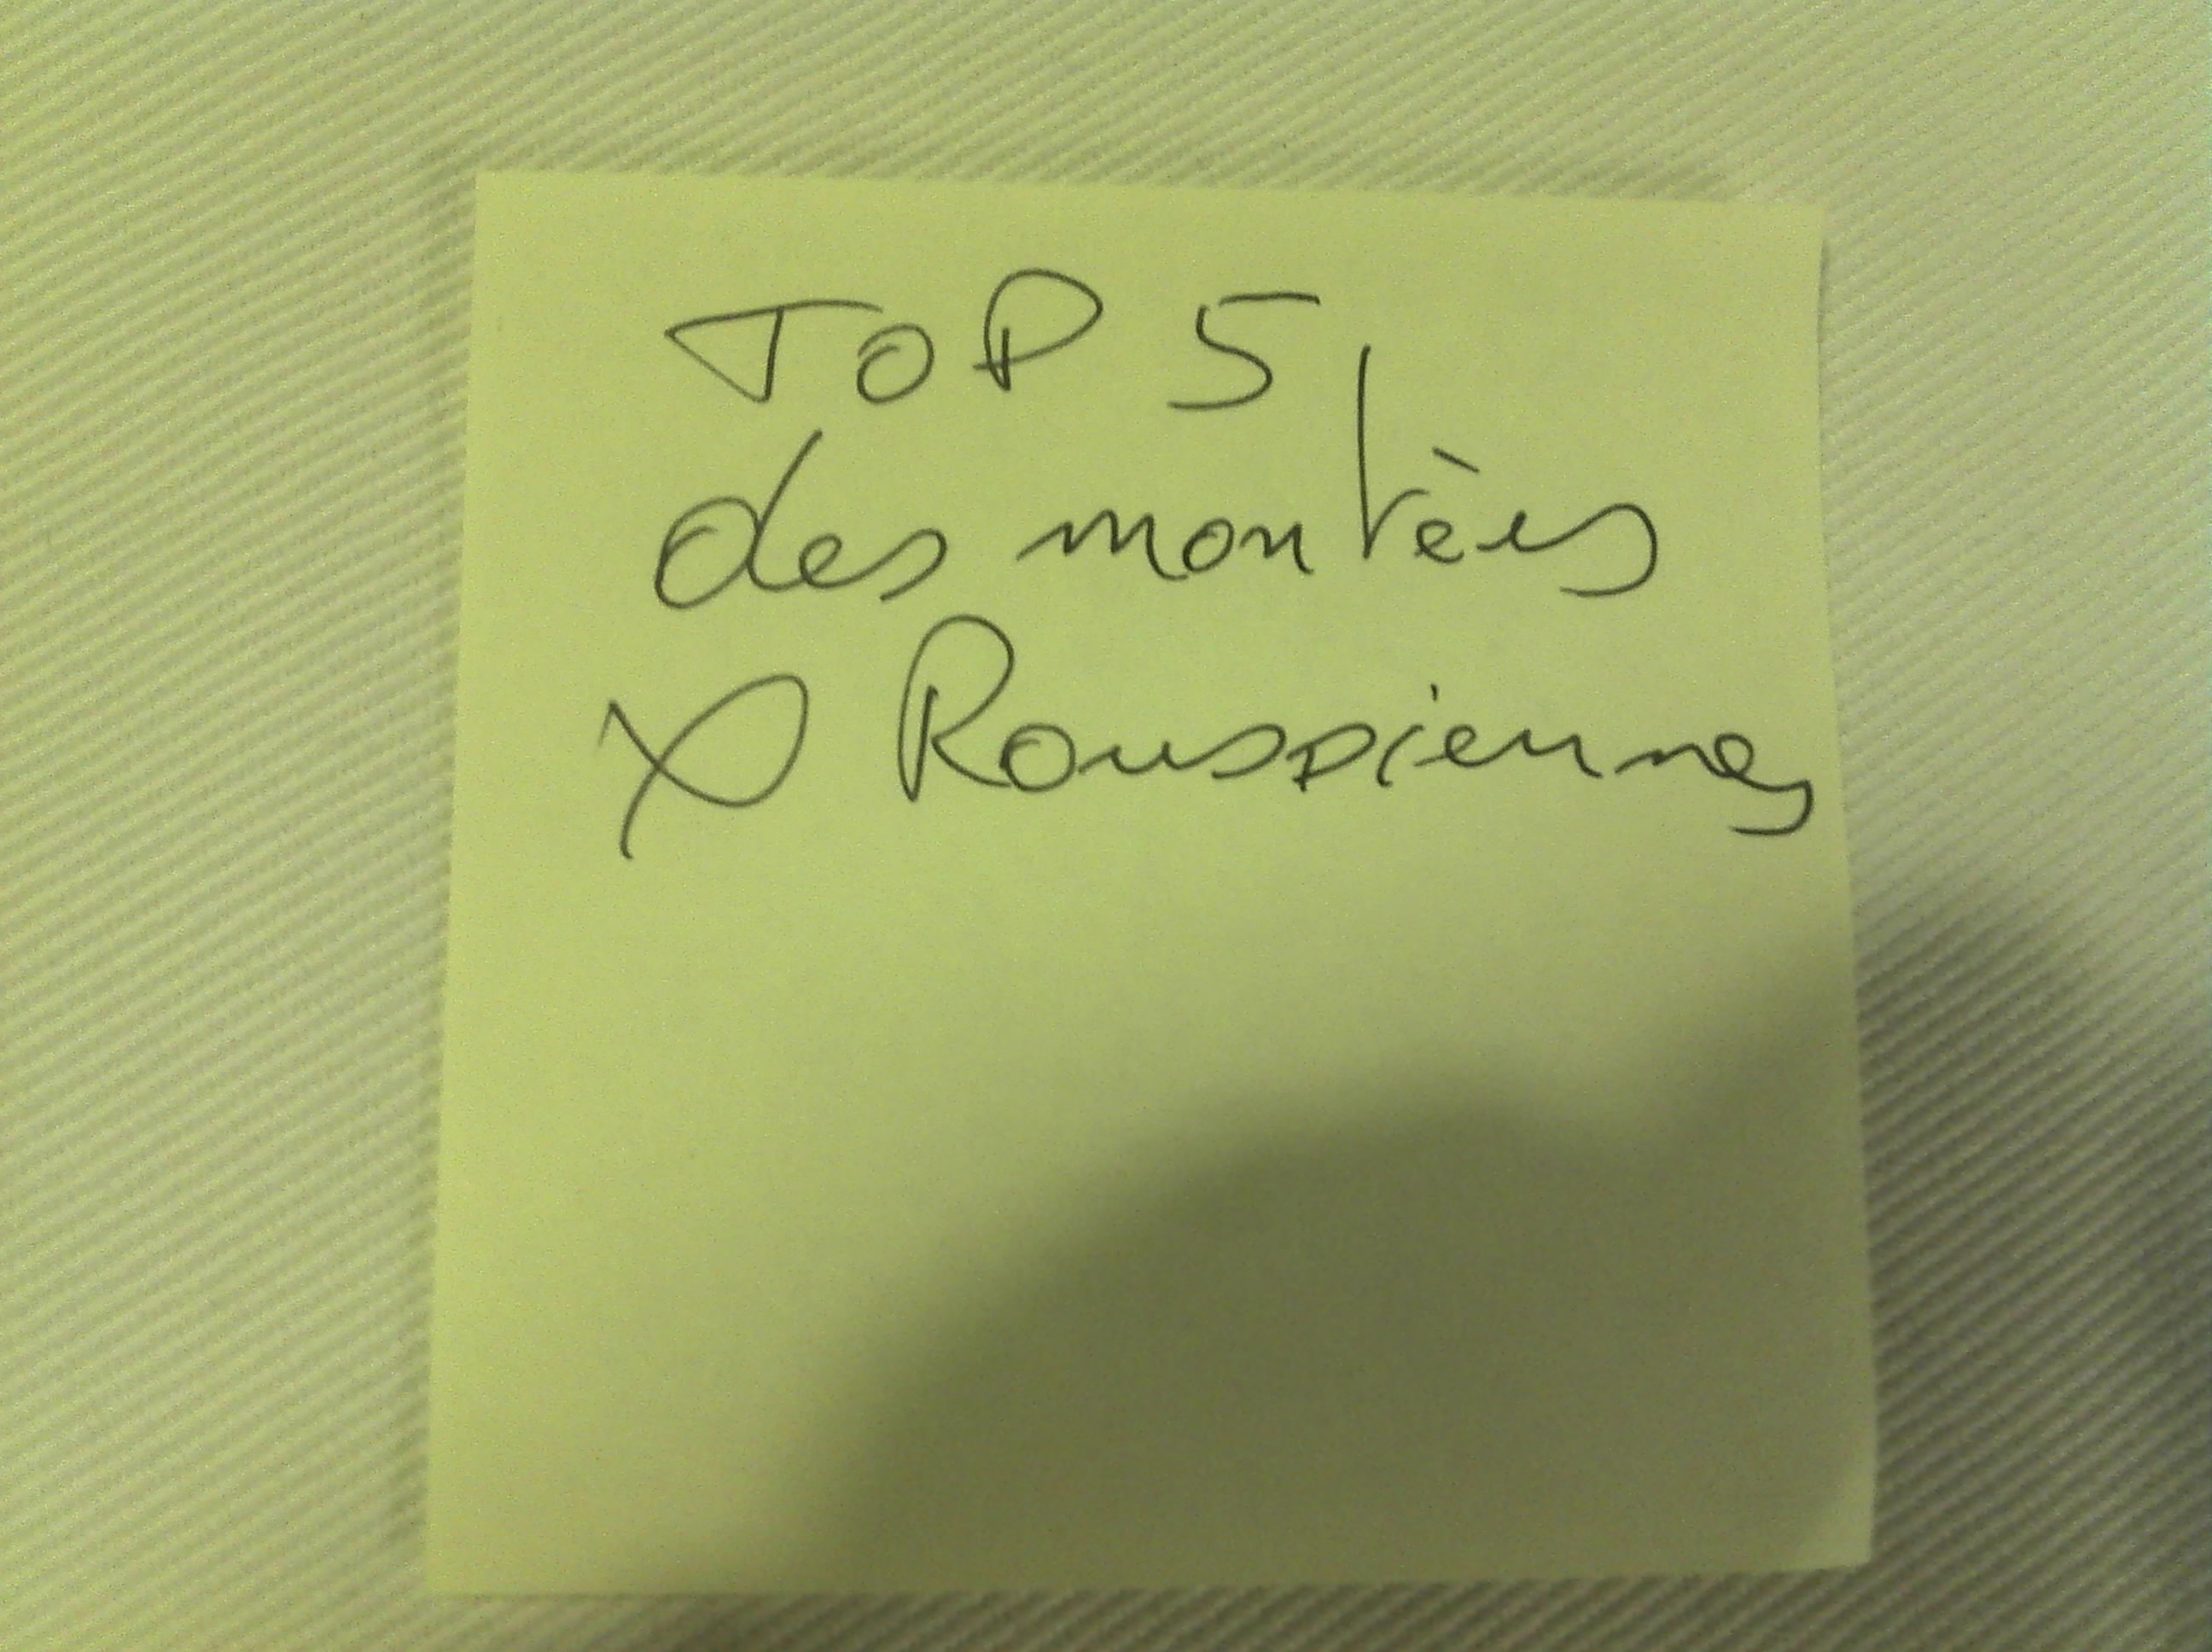 TOP 5
des montèes
X Roussiennes